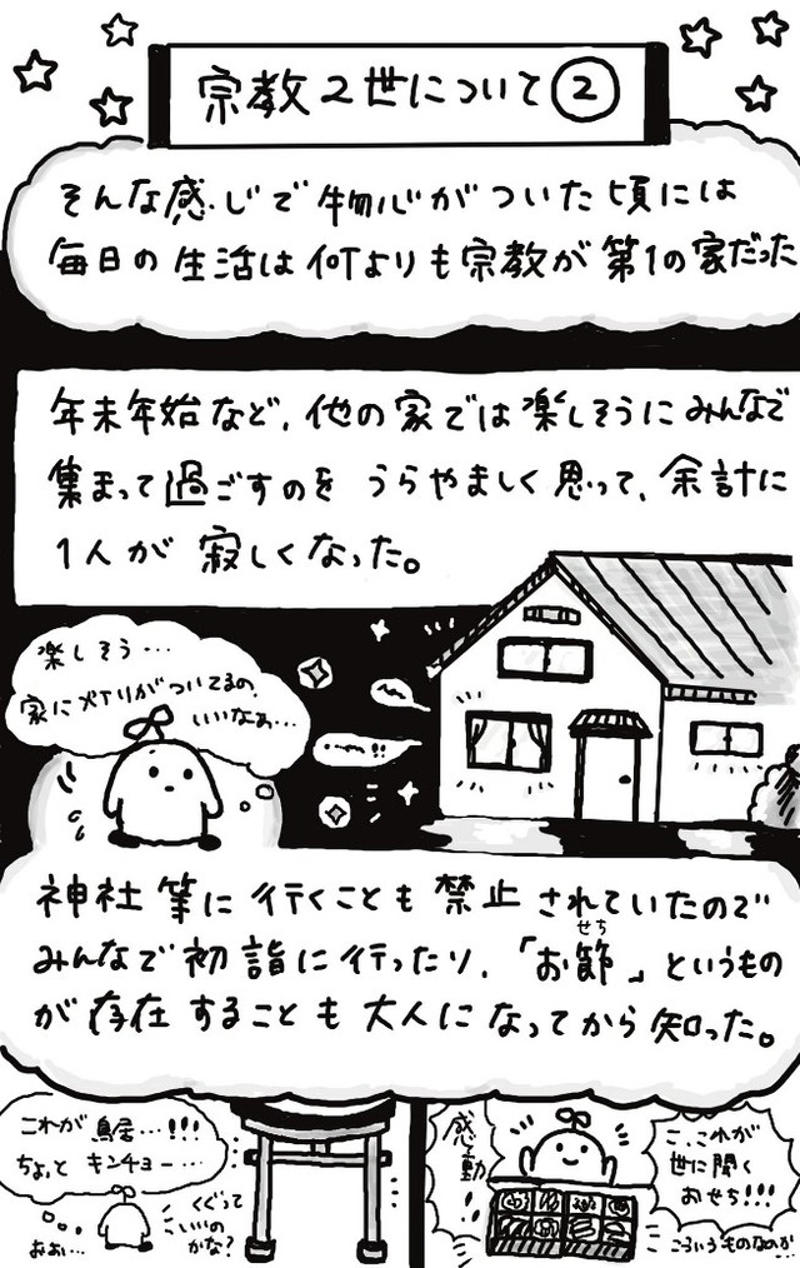 宗教2世について②
そんな感じで物心がついた頃には
毎日の生活は何よりも宗教が第1の家だった
年末年始など、他の家では楽しそうにみんなで
集まって過ごすのをうらやましく思って、余計に
1人が寂しくなった。
楽しそう…
家にメイリがついてるの、
いいなぁ…
!!
神社等に行くことも禁止されていたので
みんなで初詣に行ったり、「お節」というもの
せち
が存在することも大人になってから知った。
これが鳥居…!!!
ちょっとキンチョー…
くぐって
いいの
かな?
おぉ…
感動!!
こ、これが
世に聞く
おせち!!!
こういうものなのか